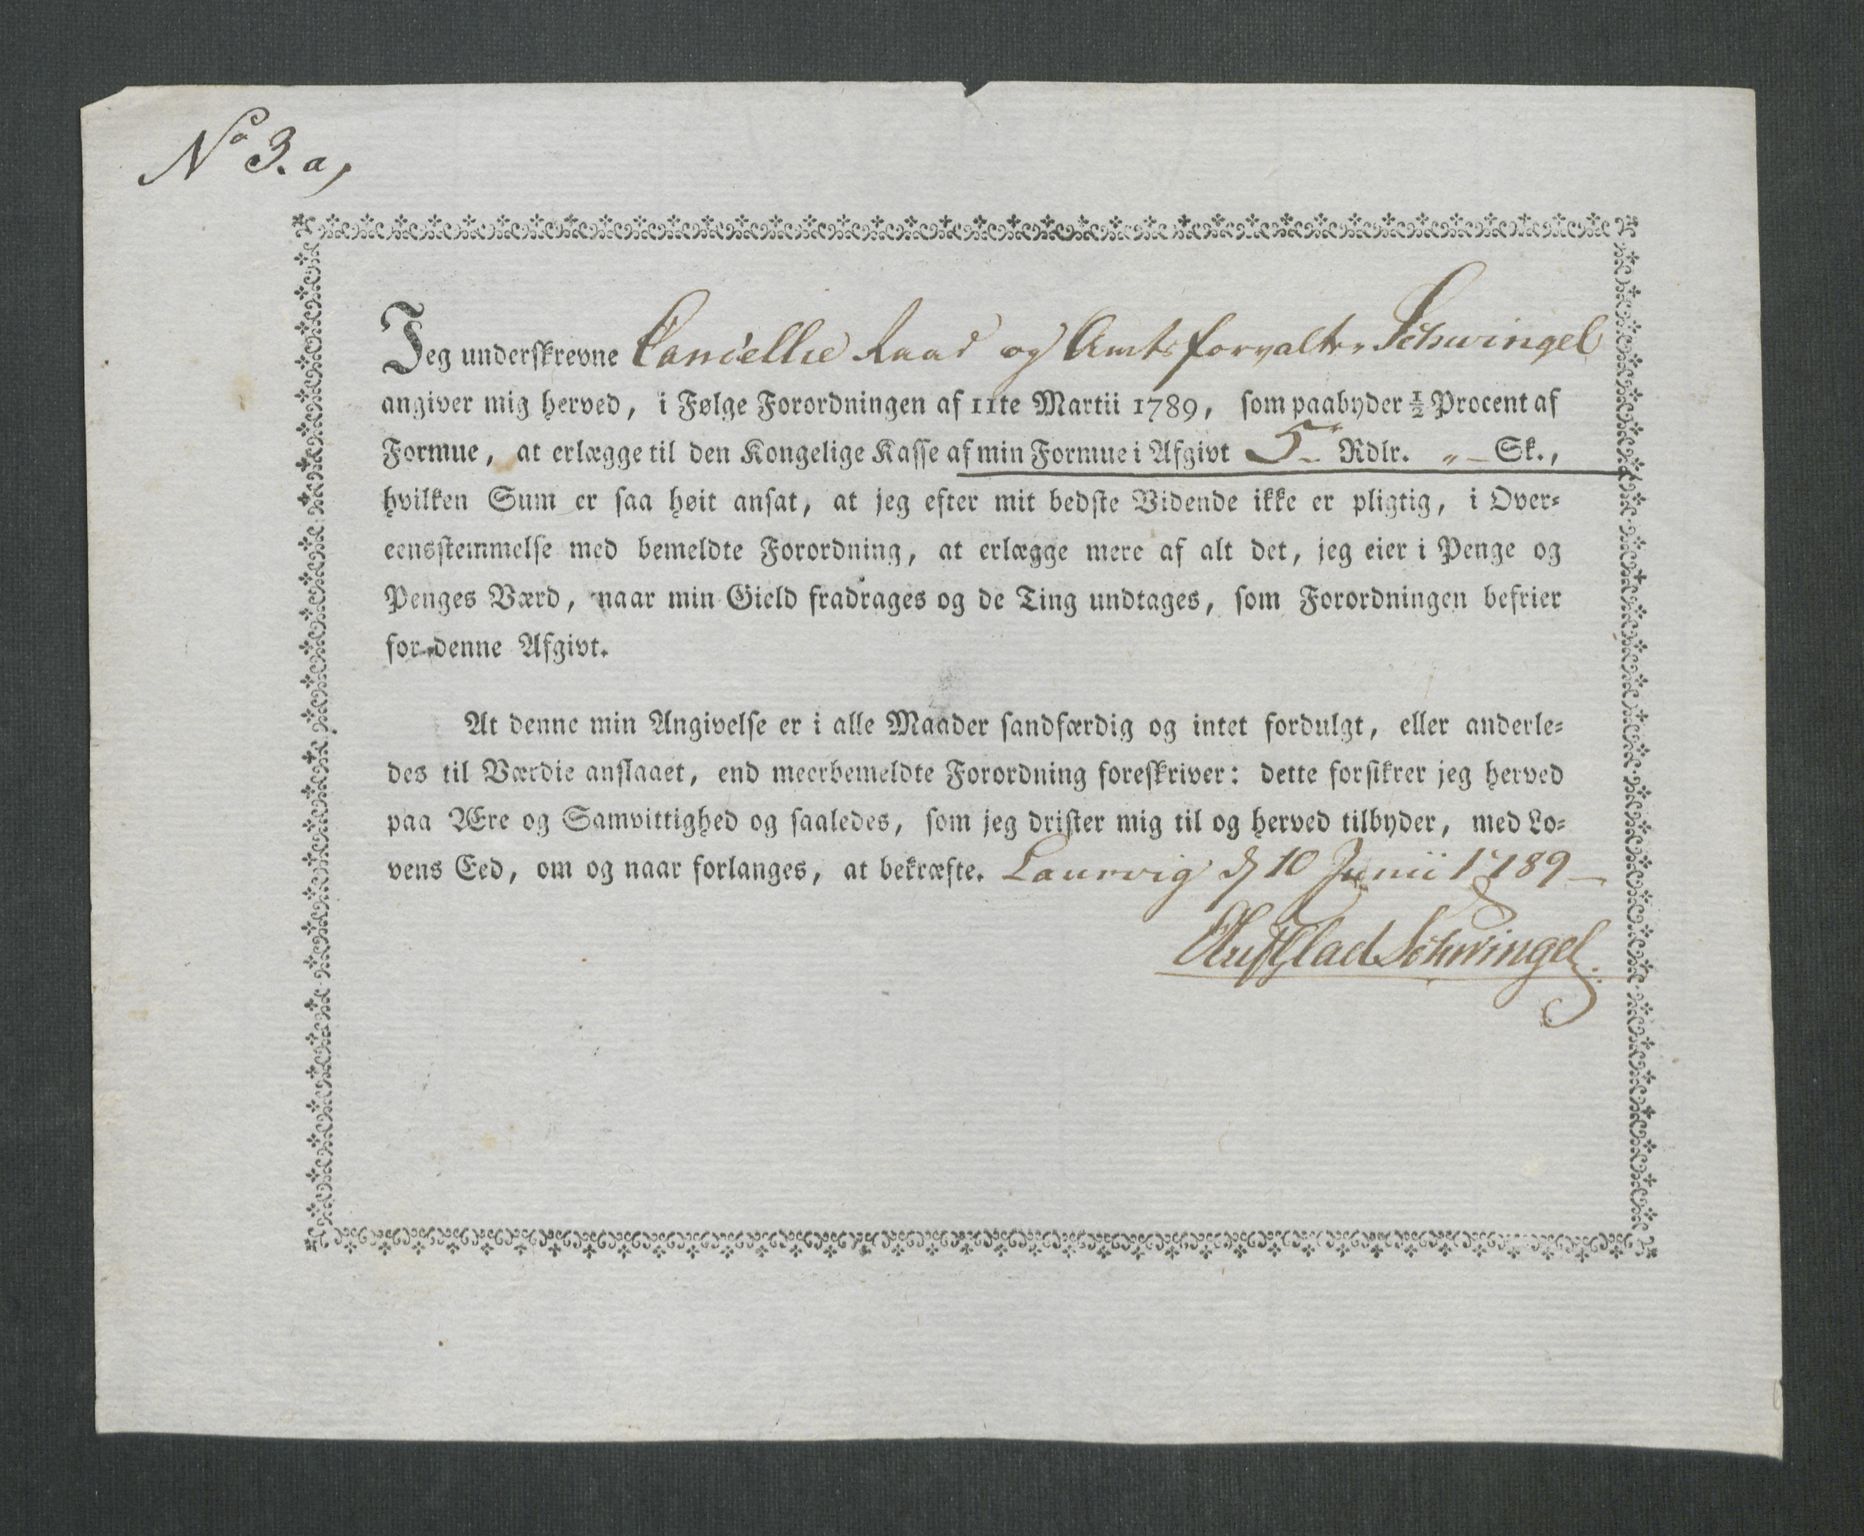 No 3. a,
Jeg underskrevne Cancellie Raad og Amtsforvalter Schwingel
angiver mig herved, i Følge Forordningen af 11te Martii 1789, som paabyder ½ Procent af
Formue, at erlægge til den Kongelige Kasse af min Formue i Afgivt 5 Rdlr. " Sk.,
hvilken Sum er saa høit ansat, at jeg efter mit bedste Vidende ikke er pligtig, i Over-
eensstemmelse med bemeldte Forordning, at erlægge mere af alt det, jeg eier i Penge og
Penges Værd, naar min Gield fradrages og de Ting undtages, som Forordningen befrier
for denne Afgivt.
At denne min Angivelse er i alle Maader sandfærdig og intet fordulgt, eller anderle-
des til Værdie anslaaet, end meerbemeldte Forordning foreskriver: dette forsikrer jeg herved
paa Ære og Samvittighed og saaledes, som jeg drister mig til og herved tilbyder, med Lo-
vens Eed, om og naar forlanges, at bekræfte. Laurvig d 10 Junii 1789
Schwingel